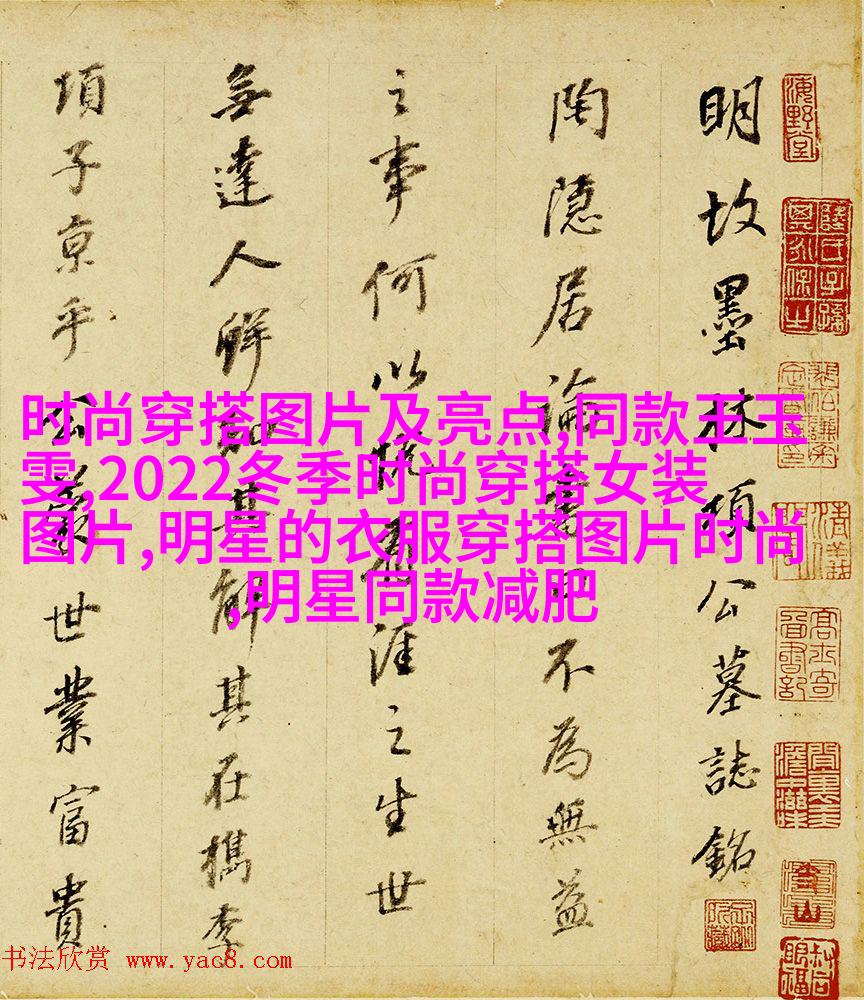 明故墨林項公墓誌銘
陶隱居論書曰不為無益
之事何以悅有涯之生世
無達人鮮知其解其在檇李
項子京乎公蒙世業富貴
海野堂
时尚穿搭图片及亮点,同款王玉
雯,2022冬季时尚穿搭女装
图片,明星的衣服穿搭图片时尚
,明星同款减肥
书法欣赏 www.yac8.com